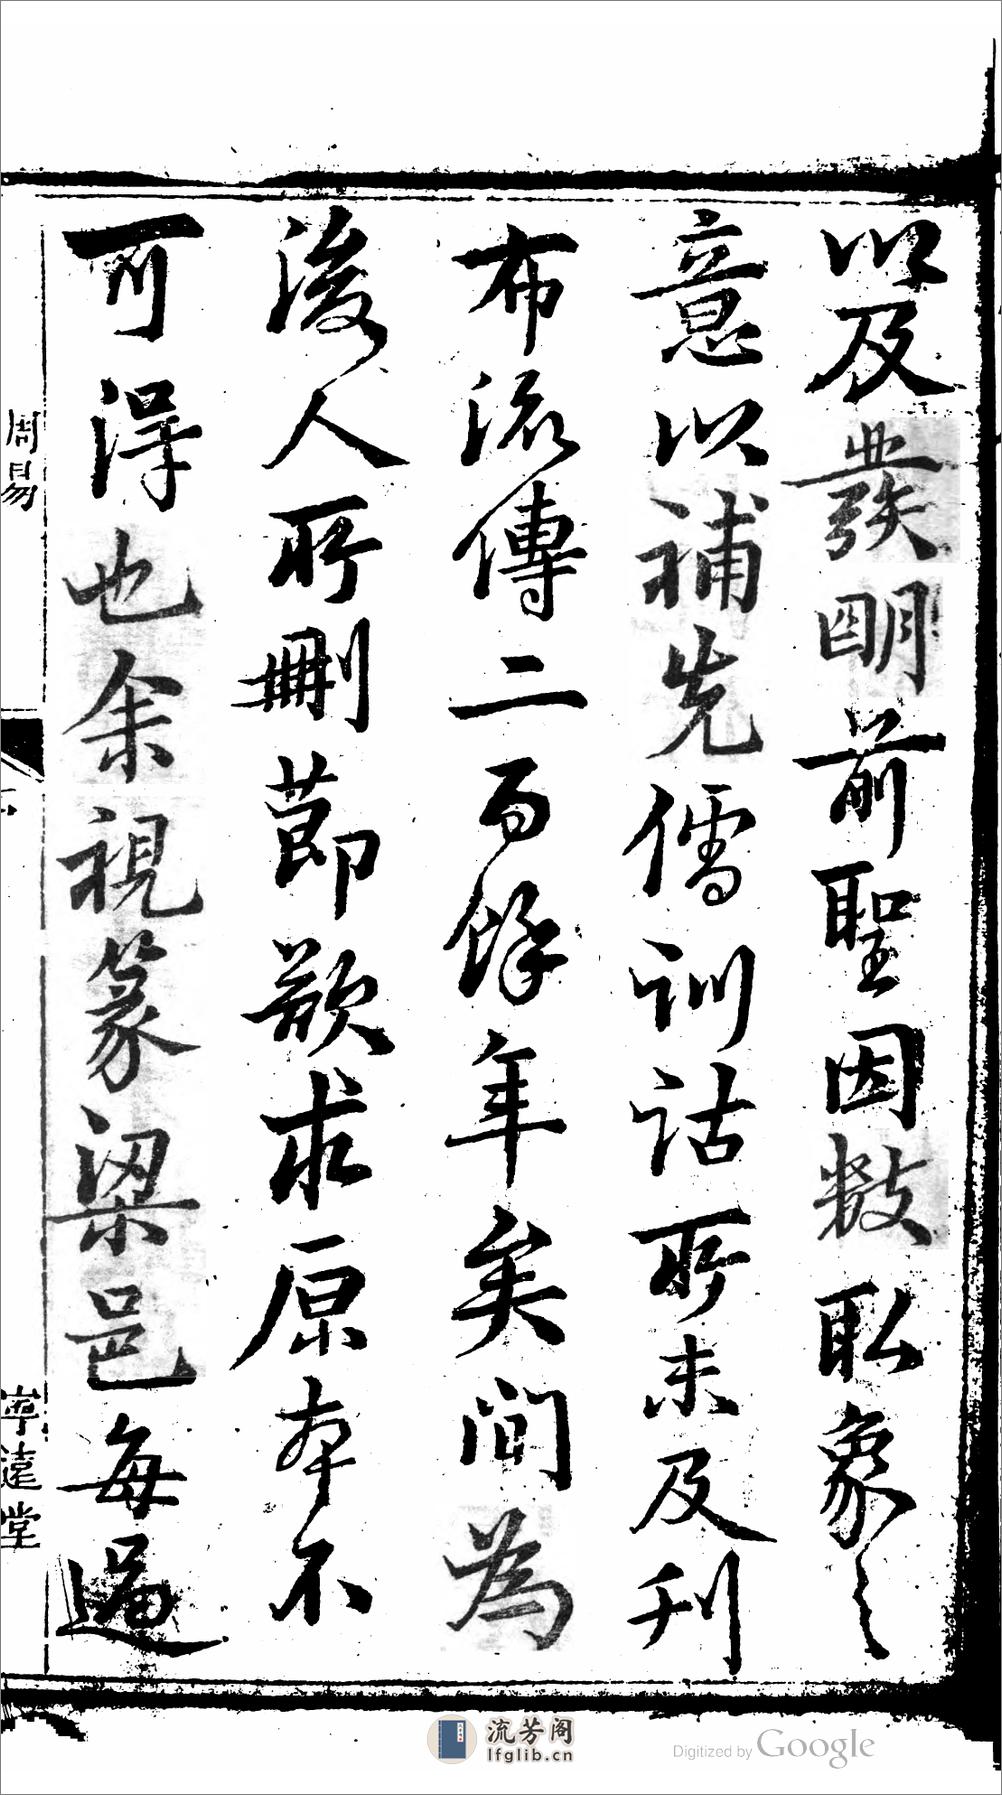 以及發明前聖因數取象之
意以補先儒訓詁所未及刊
布流傳二百餘年矣間為
後人所刪節欲求原本不
可得也余視篆梁邑每過
周易
寧遠堂
流芳阁
lfglib.cn
Digitized by Google